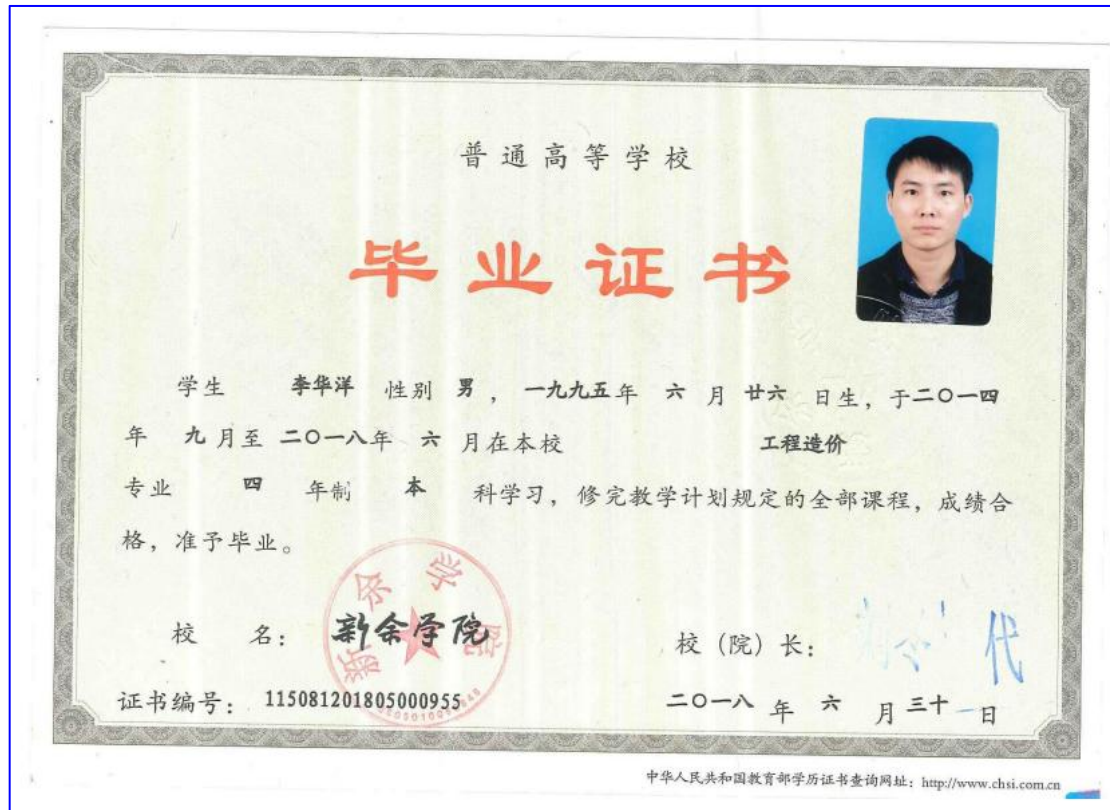 普通高等学校
毕业证书
学生 李华洋 性别 男 , 一九九五年 六 月 廿六 日生, 于二〇一四
年 九月至 二〇一八年 六 月在本校 工程造价
专业 四 年制 本 科学习, 修完教学计划规定的全部课程, 成绩合
格, 准予毕业。
校 名: 新余学院
新余学院
校(院)长: 代
证书编号: 115081201805000955
二〇一八 年 六 月 三十 日
中华人民共和国教育部学历证书查询网址: http://www.chsi.com.cn